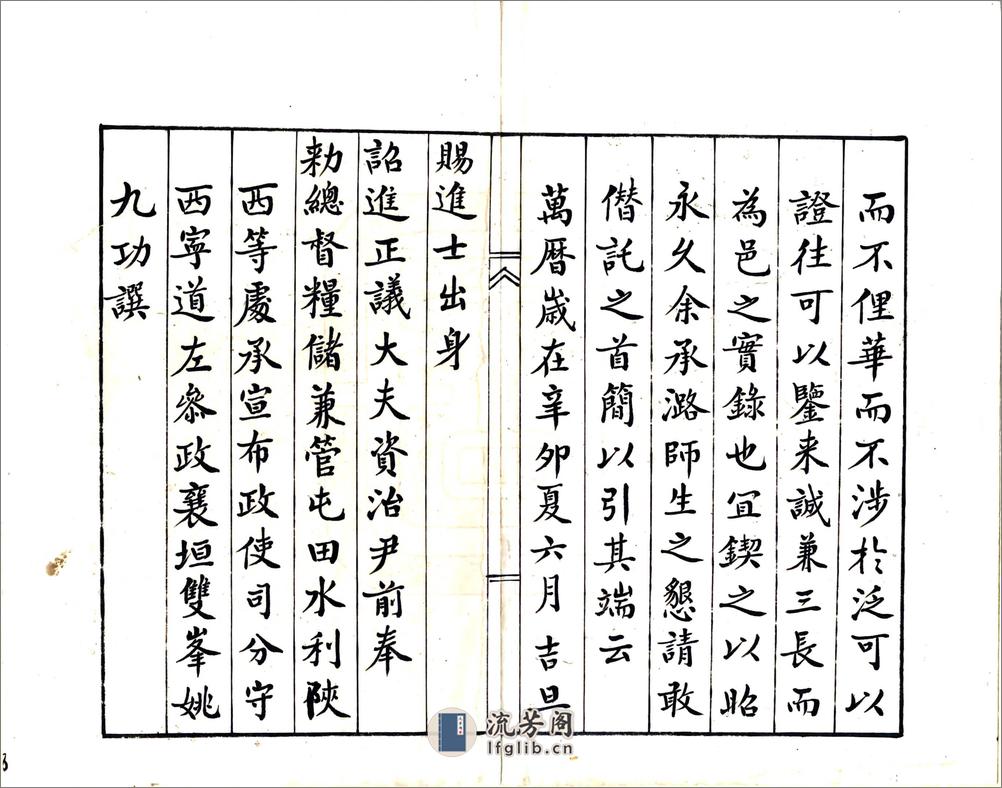 而不俚華而不涉於泛可以
證往可以鑒来誠兼三長而
為邑之實錄也宜鍥之以昭
永久余承潞師生之懇請敢
僣託之首簡以引其端云
萬曆歲在辛卯夏六月吉旦
賜進士出身
詔進正議大夫資治尹前奉
勑總督糧儲兼管屯田水利陝
西等處承宣布政使司分守
西寧道左叅政襄垣雙峯姚
九功譔
流芳阁
lfglib.cn
3